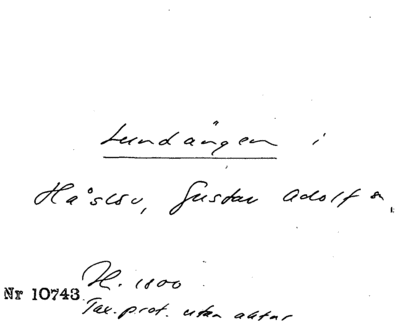 Lundängen i
Håslöv, Gustav Adolf s.
H. 1800
Nr 10743
Tax. prot. utan aktnr